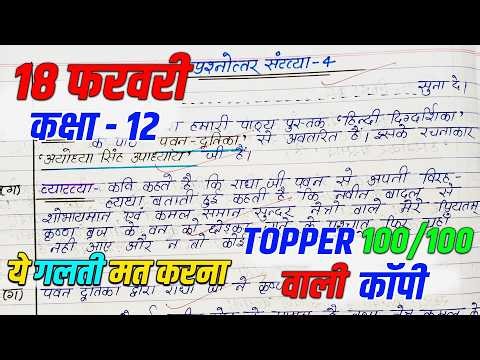 प्रश्नोत्तर संख्या-4
18 फरवरी
सुना दे।
कक्षा - 12
हमारी पाठ्य पुस्तक 'हिन्दी दिग्दर्शिका'
के पाठ पवन-दूतिका' से अवतरित है। इसके रचनाकार
'अयोध्या सिंह उपाध्याय' जी हैं।
व्याख्या- कवि कहते है कि राधा जी पवन से अपनी विरह-
व्यथा बताती हुई कहती है कि नवीन बादल से
शोभायमान एवं कमल समान सुन्दर नेत्रों वाले मेरे प्रियतम
कृष्ण ब्रज के वन को छोड़कर
नही आए और न ही कोई
TOPPER 100/100
ये गलती मत करना
वाली कॉपी
(ग) पवन दूतिका द्वारा राधा जी ने कृष्ण